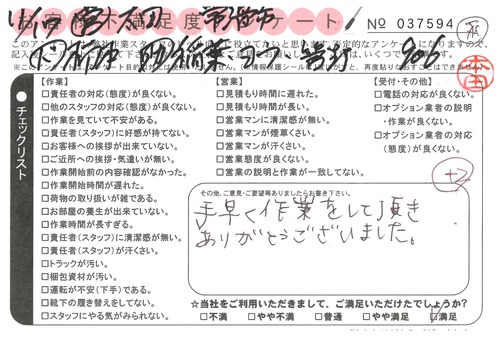 お客様満足度アンケート!
No 037594
チェックリスト
【作業】
□責任者の対応(態度)が良くない。
□他のスタッフの対応(態度)が良くない。
□作業を見ていて不安がある。
□責任者(スタッフ)に好感が持てない。
□お客様への挨拶が出来ていない。
□ご近所への挨拶・気遣いが無い。
□作業開始前の内容確認がなかった。
□作業開始時間が遅れた。
□荷物の取り扱いが雑である。
□お部屋の養生が出来ていない。
□作業時間が長すぎる。
□責任者(スタッフ)に清潔感が無い。
□責任者(スタッフ)が汗くさい。
□トラックが汚い。
□梱包資材が汚い。
□運転が不安(下手)である。
□靴下の履き替えをしてない。
□スタッフにやる気がみられない。
【営業】
□見積もり時間に遅れた。
□見積もり時間が長い。
□営業マンに清潔感が無い。
□営業マンが煙草くさい。
□営業マンが汗くさい。
□営業態度が良くない。
□営業の説明と作業が一致してない。
【受付・その他】
□電話の対応が良くない。
□オプション業者の説明
・作業が良くない。
□オプション業者の対応
(態度)が良くない。
その他、ご意見・ご要望等ありましたらお書き下さい。
手早く作業をして頂き
ありがとうございました。
☆当社をご利用いただきまして、ご満足いただけたでしょうか?
□不満 □やや不満 □普通 □やや満足 □満足